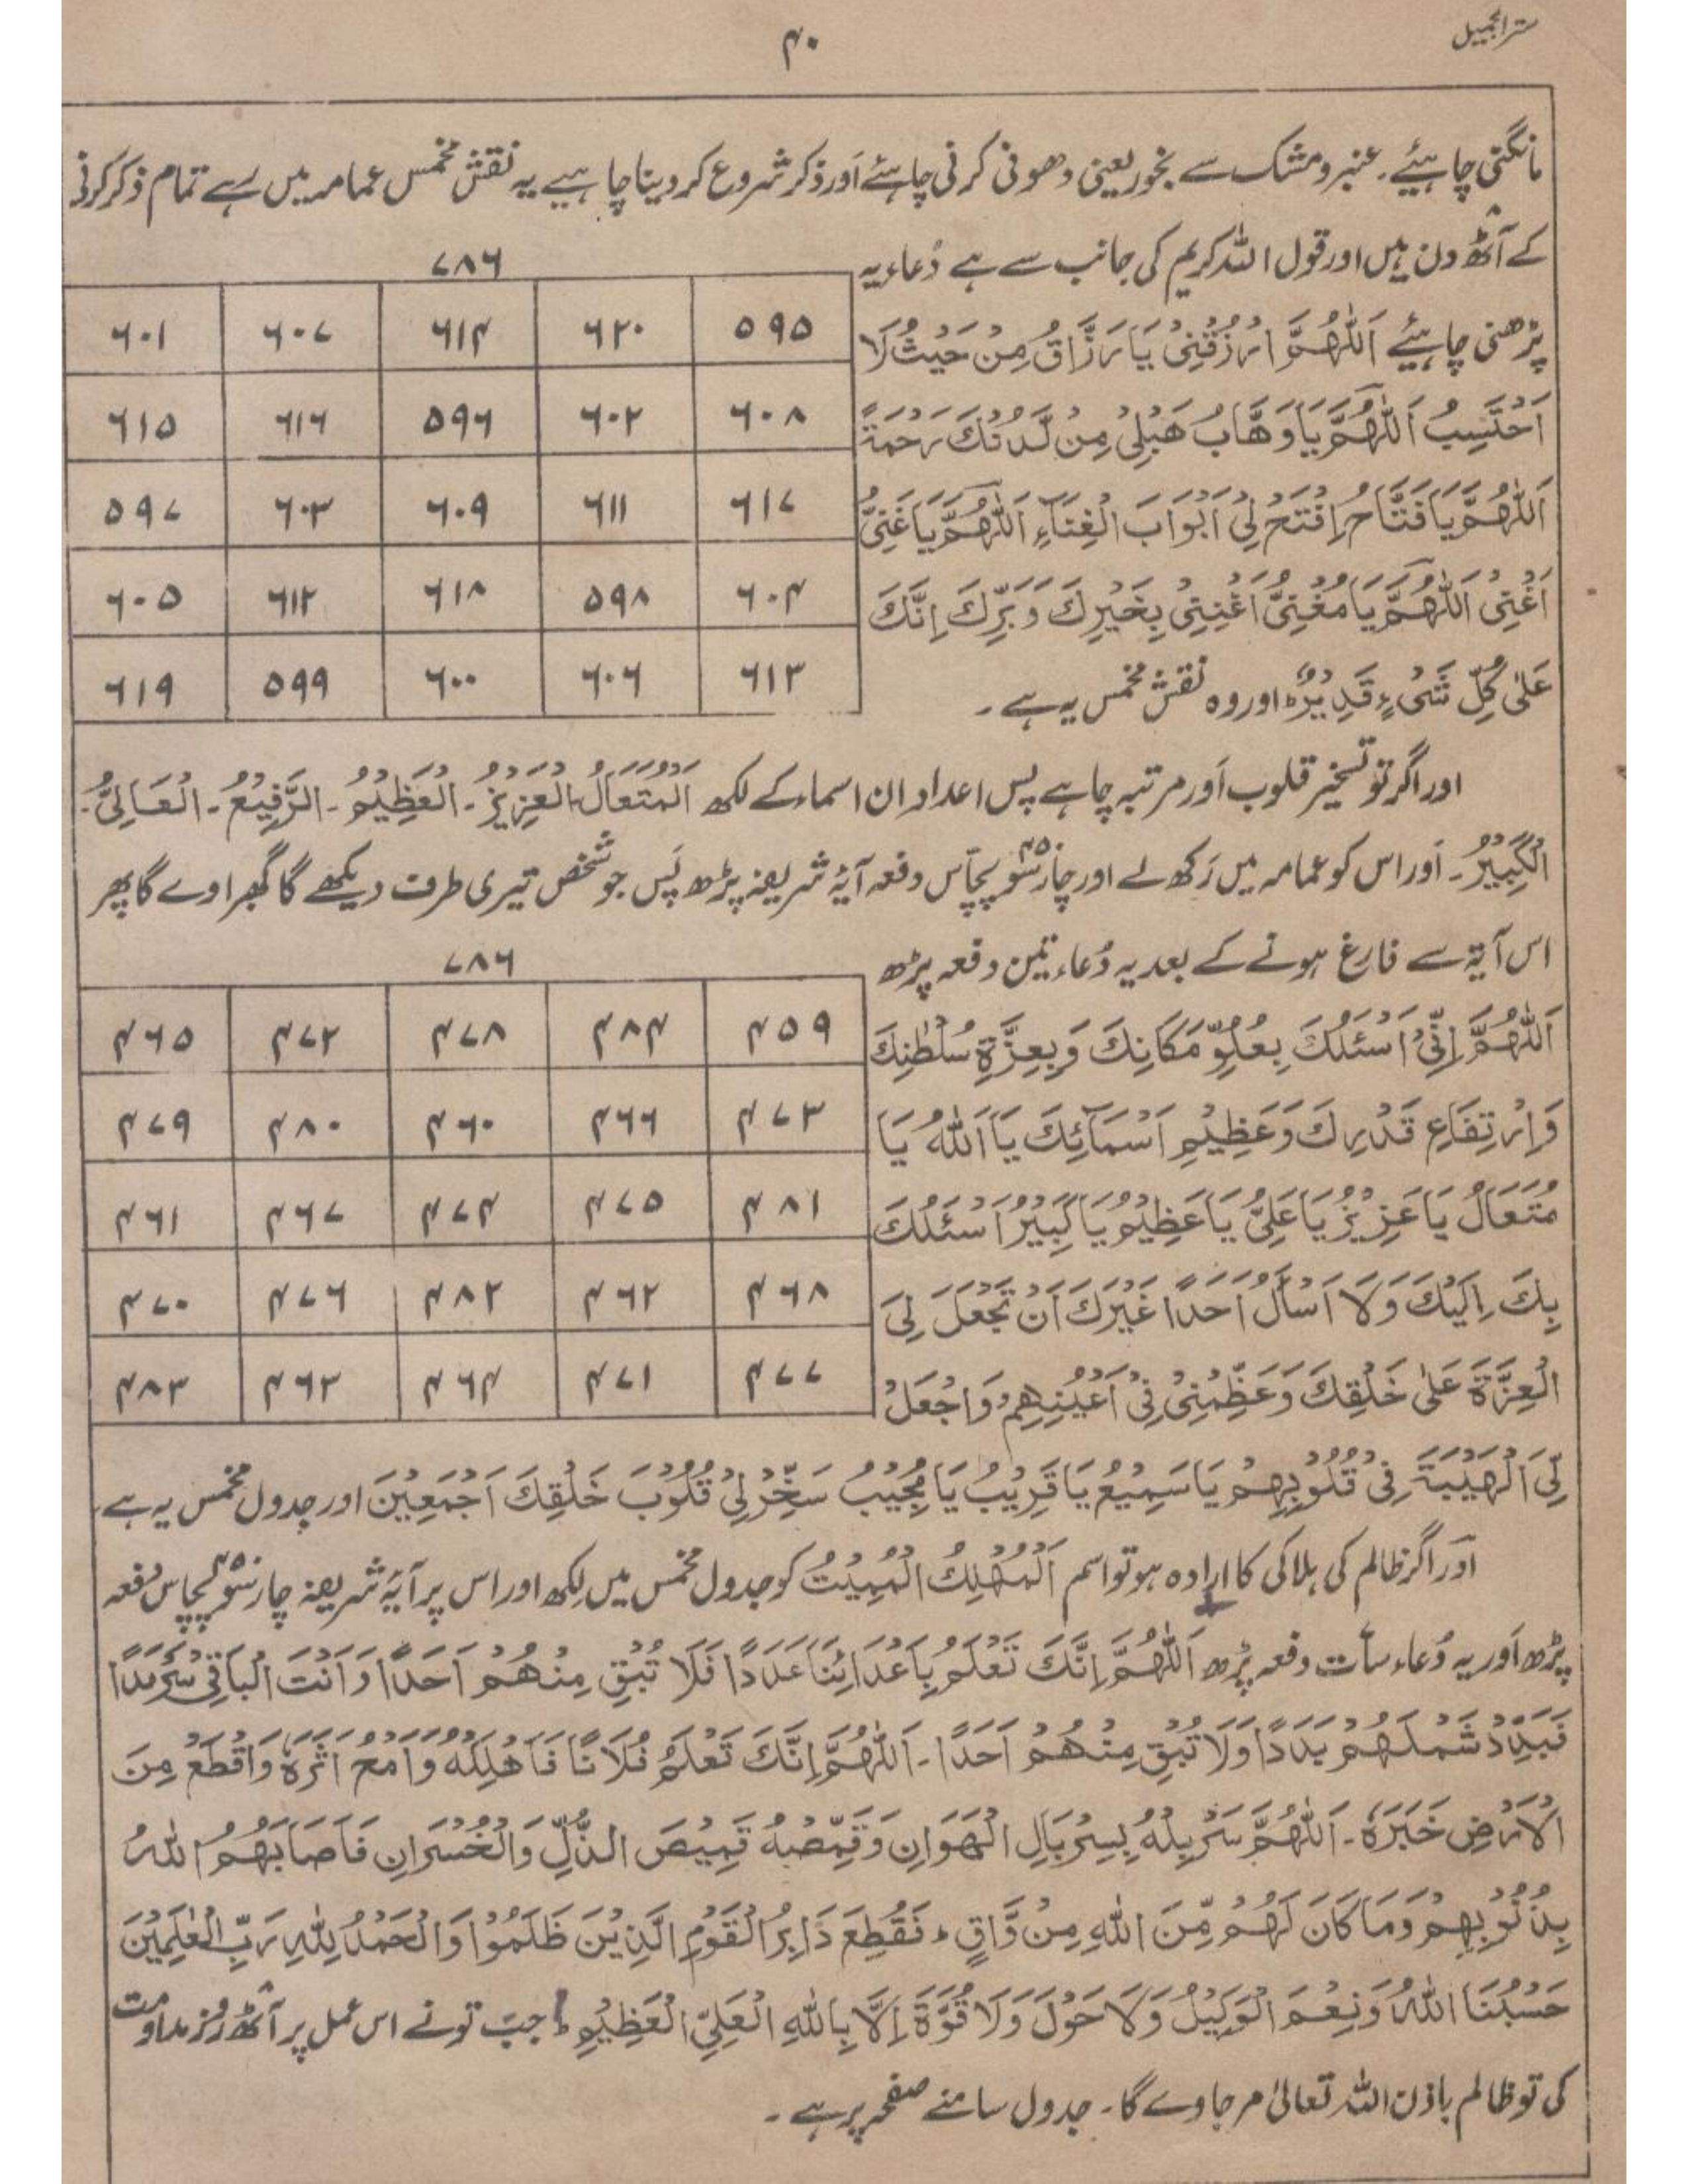 سترالجمیل
۴۰
مانگنی چاہیئے۔ عنبر و مشک سے بخور یعنی دھونی کرنی چاہئے اَور ذکر شروع کر دینا چاہیے یہ نقش مخمس عمامہ میں رہے تمام ذکر کرنی
کے آٹھ دن ہیں اور قول اللہ کریم کی جانب سے ہے دُعاء یہ
پڑھنی چاہیئے اَللّٰهُمَّ ارْزُقْنِیْ یَا رَزَّاقُ مِنْ حَیْثُ لَا
اَحْتَسِبُ اَللّٰهُمَّ یَا وَهَّابُ هَبْلِیْ مِنْ لَّدُنْكَ رَحْمَةً
اَللّٰهُمَّ یَا فَتَّاحُ اِفْتَحْ لِیْ اَبْوَابَ الْغِنَآءِ اَللّٰهُمَّ یَا غَنِیُّ
اَغْنِیْ اَللّٰهُمَّ یَا مُغْنِیُّ اَغْنِنِیْ بِخَیْرِكَ وَ بَرِّكَ اِنَّكَ
عَلٰی كُلِّ شَیْءٍ قَدِیْرٌ ؕ اور وہ نقش مخمس یہ ہے۔
۷۸۶
۵۹۵ ۶۲۰ ۶۱۴ ۶۰۷ ۶۰۱
۶۰۸ ۶۰۲ ۵۹۶ ۶۱۶ ۶۱۵
۶۱۷ ۶۱۱ ۶۰۹ ۶۰۳ ۵۹۷
۶۰۴ ۵۹۸ ۶۱۸ ۶۱۲ ۶۰۵
۶۱۳ ۶۰۶ ۶۰۰ ۵۹۹ ۶۱۹
اور اگر تو تسخیر قلوب اَور مرتبہ چاہے پس اعداد ان اسماء کے لکھ اَلْمُتَعَالُ الْعَزِیْزُ۔ الْعَظِیْمُ۔ الرَّفِیْعُ۔ الْعَالِیُّ۔
الْكَبِیْرُ۔ اَور اس کو عمامہ میں رَکھ لے اور چار سَو پچاس ۴۵۰ دفعہ آیۂ شریفہ پڑھ پَس جو شخص تیری طرف دیکھے گا گھبراوے گا پھر
اس آیۃ سے فارغ ہونے کے بعد یہ دُعاء تین دفعہ پڑھ
اَللّٰهُمَّ اِنِّیْ اَسْئَلُكَ بِعُلُوِّ مَكَانِكَ وَ بِعِزَّةِ سُلْطٰنِكَ
وَ اِرْتِفَاعِ قَدْرِكَ وَ عَظِیْمِ اَسْمَآئِكَ یَا اَللّٰهُ یَا
مُتَعَالُ یَا عَزِیْزُ یَا عَلِیُّ یَا عَظِیْمُ یَا كَبِیْرُ اَسْئَلُكَ
بِكَ اِلَیْكَ وَ لَا اَسْأَلُ اَحَدًا غَیْرَكَ اَنْ تَجْعَلَ لِیَ
الْعِزَّةَ عَلٰی خَلْقِكَ وَ عَظِّمْنِیْ فِیْ اَعْیُنِهِمْ وَ اجْعَلْ
۷۸۶
۴۵۹ ۴۸۴ ۴۷۸ ۴۷۲ ۴۶۵
۴۷۳ ۴۶۶ ۴۶۰ ۴۸۰ ۴۷۹
۴۸۱ ۴۷۵ ۴۷۴ ۴۶۷ ۴۶۱
۴۶۸ ۴۶۲ ۴۸۲ ۴۷۶ ۴۷۰
۴۷۷ ۴۷۱ ۴۶۴ ۴۶۳ ۴۸۳
لِّیَ الْهَیْبَةَ فِیْ قُلُوْبِهِمْ یَا سَمِیْعُ یَا قَرِیْبُ یَا مُجِیْبُ سَخِّرْ لِیْ قُلُوْبَ خَلْقِكَ اَجْمَعِیْنَ اور جدول مخمس یہ ہے۔
اَور اگر ظالم کی ہلاکی کا ارادہ ہو تو اسم اَلْمُهْلِكُ الْمُمِیْتُ کو جدول مخمس میں لکھ اور اس پر آیۂ شریفہ چار سَو پچاس ۴۵۰ دفعہ
پڑھ اَور یہ دُعاء سات دفعہ پڑھ اَللّٰهُمَّ اِنَّكَ تَعْلَمُ بِاَعْدَائِنَا عَدَدًا فَلَا تُبْقِ مِنْهُمْ اَحَدًا وَ اَنْتَ الْبَاقِیْ سَرْمَدًا
فَبَدِّدْ شَمْلَهُمْ بَدَدًا وَلَا تُبْقِ مِنْهُمْ اَحَدًا۔ اَللّٰهُمَّ اِنَّكَ تَعْلَمُ فُلَانًا فَاَهْلِكْهُ وَ امْحُ اَثَرَهٗ وَ اقْطَعْ مِنَ
الْاَرْضِ خَبَرَهٗ۔ اَللّٰهُمَّ سَرْبِلْهُ بِسِرْبَالِ الْهَوَانِ وَ قَمِّصْهُ قَمِیْصَ الذُّلِّ وَ الْخُسْرَانِ فَاَصَابَهُمُ اللّٰهُ
بِذُنُوْبِهِمْ وَ مَا كَانَ لَهُمْ مِّنَ اللّٰهِ مِنْ وَّاقٍ ؕ فَقُطِعَ دَابِرُ الْقَوْمِ الَّذِیْنَ ظَلَمُوْا وَ الْحَمْدُ لِلّٰهِ رَبِّ الْعٰلَمِیْنَ
حَسْبُنَا اللّٰهُ وَ نِعْمَ الْوَكِیْلُ وَ لَا حَوْلَ وَ لَا قُوَّةَ اِلَّا بِاللّٰهِ الْعَلِیِّ الْعَظِیْمِ ؕ جب تو نے اس عمل پر آٹھ روز مداومت
کی تو ظالم باذن اللہ تعالیٰ مر جاوے گا۔ جدول سامنے صفحہ پر ہے۔